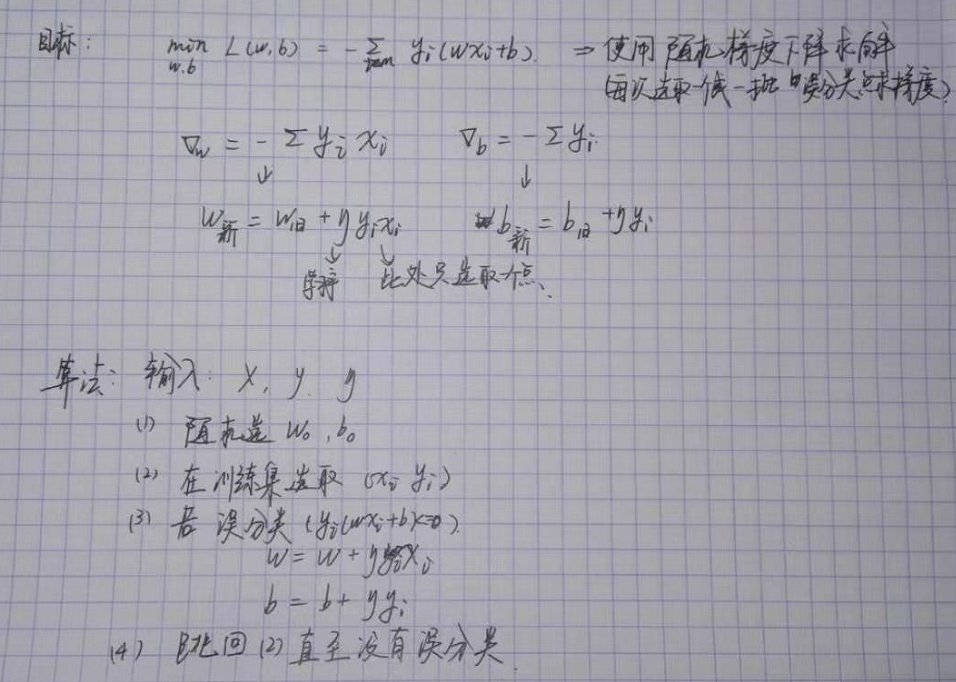 目标: min L(w,b) = -Σ yi(wxi+b). ⇒ 使用随机梯度下降求解
w,b xi∈m
(每次选取一个或一批误分类点求梯度)
∇w = - Σ yi xi ∇b = - Σ yi
↓ ↓
w新 = w旧 + η yi xi b新 = b旧 + η yi
↓ ↓
学习率 此处只选取一个点、
算法: 输入: X, y η
(1) 随机选 w0, b0
(2) 在训练集选取 (xi yi)
(3) 若误分类 (yi(wxi+b)<=0)
w = w + η yi xi
b = b + η yi
(4) 跳回 (2) 直至没有误分类.